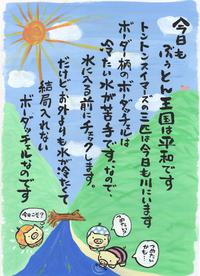 今日も
ぶぅとん王国は平和です
トントンスイマーズの三匹は今日も川にいます
ボーダー柄のボーダッチルは
冷たい水が苦手です。なので、
水に入る前にチェックします。
だけど、お外よりも水が冷たくて
結局入れない
ボーダッチルなのです
今日こそ!?